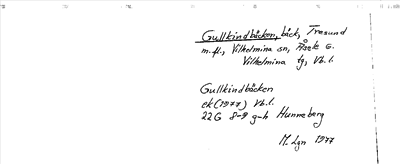 Gullkindbäcken, bäck, Tresund
m.fl., Vilhelmina sn, Åsele
Vilhelmina tg, Vb.l.
Gullkindbäcken
ek (1977) Vb.l.
22G 8-9 g-h Hunneberg
M. Lgn 1977